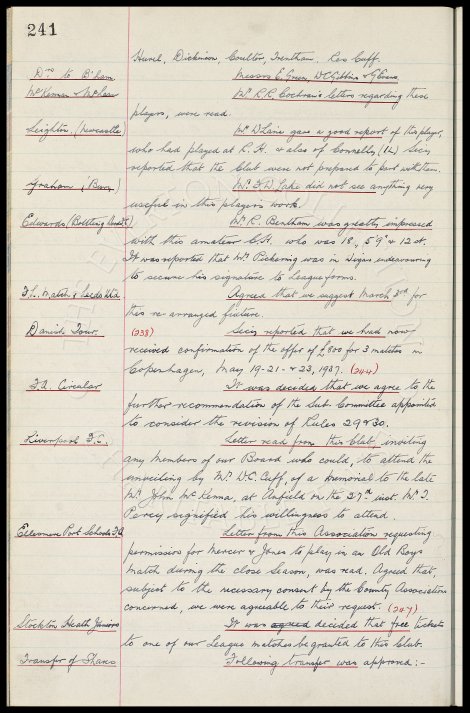 241
Hurel, Dickinson, Coulter, Trentham. Res Cuff.
Drs to B'ham. Messrs E. Green, W.C. Gibbins & G. Evans.
McKenna & McLean Mr R.R. Cochran's letters regarding these
players, were read.
Leighton. (Newcastle) Mr W. Line gave a good report of this player,
who had played at R.H. & also of Connelly, (I.L.) Secy
reported that the Club were not prepared to part with them.
Graham (Bury) Mr F.W. Lake did not see anything very
useful in this player's work.
Edwards (Bootting Unit R) Mr R. Bentham was greatly impressed
with this amateur C.H. who was 18, 5'9" & 12 st.
It was reported that Mr Pickering was in Wigan endeavouring
to secure his signature to League forms.
F.L. Match v Leeds Utd. Agreed that we suggest March 3rd for
this re-arranged fixture.
Danish Tour. (238) Secy reported that we had now
received confirmation of the offer of £800 for 3 matches in
Copenhagen, May 19-21 & 23, 1937. (244)
F.A. Circular It was decided that we agree to the
further recommendation of the Sub-Committee appointed
to consider the revision of Rules 29 & 30.
Liverpool F.C. Letter read from this Club, inviting
any members of our Board who could, to attend the
unveiling by Mr W.C. Cuff, of a memorial to the late
Mr John McKenna, at Anfield on the 27th inst. Mr T.
Percy signified his willingness to attend.
Ellesmere Port Schools F.A. Letter from this Association requesting
permission for Mercer & Jones to play in an Old Boys
match during the close Season, was read. Agreed that,
subject to the necessary consent by the County Association
concerned, we were agreeable to their request. (247)
Stockton Heath Juniors It was agreed decided that free tickets
to one of our League matches be granted to this Club.
Transfer of Shares Following transfer was approved:-